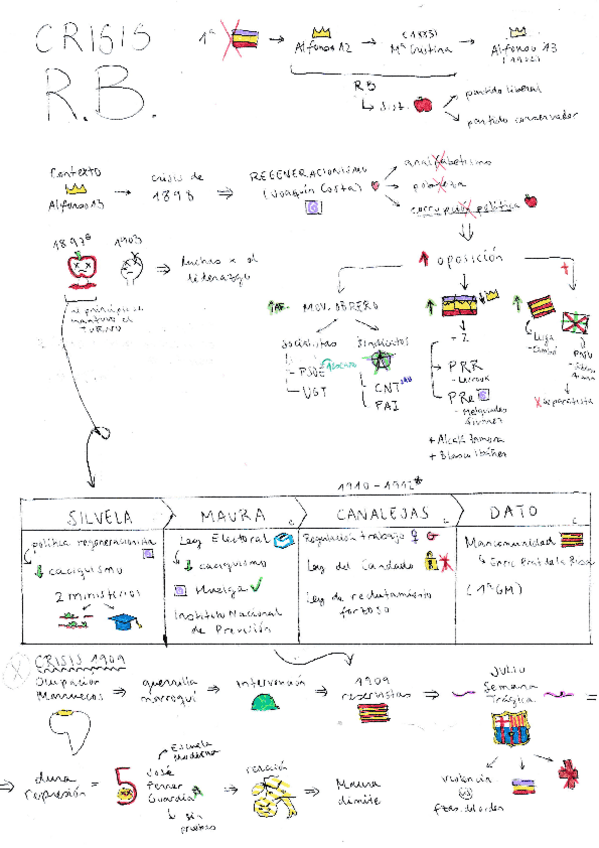 CRISIS
R.B.
1ª
Alfonso 12
(1885)
Mª Cristina
Alfonso 13
(1902)
RB
Sist.
partido liberal
partido conservador
Contexto
Alfonso 13
crisis de
1898
REGENERACIONISMO
(Joaquín Costa)
analfabetismo
pobreza
corrupción política
1897*
1903
luchas x el
liderazgo
al principio se
mantuvo el
TURNO
oposición
MOV. OBRERO
Socialistas
- PSOE
- UGT
Sindicatos
CNT
FAI
PRR
- Lerroux
PRe
- Melquiades
Álvarez
+ Alcalá Zamora
+ Blasco Ibáñez
- Lliga
- Cambó
PNV
- Sabino
Arana
separatista
1910-1912*
SILVELA
política regeneracionista
caciquismo
2 ministerios
MAURA
Ley Electoral
caciquismo
Huelga
Instituto Nacional
de Previsión
CANALEJAS
Regulación trabajo
Ley del Candado
Ley de reclutamiento
forzoso
DATO
Mancomunidad
Enric Prat de la Riba
(1ªGM)
CRISIS 1909
Ocupación
Marruecos
guerrilla
marroquí
Intervención
1909
reservistas
JULIO
Semana
Trágica
violencia
vs
fzas. del orden
dura
represión
=
5
Escuela
Moderna
José
Ferrer
Guardia
sin
pruebas
reacción
Maura
dimite